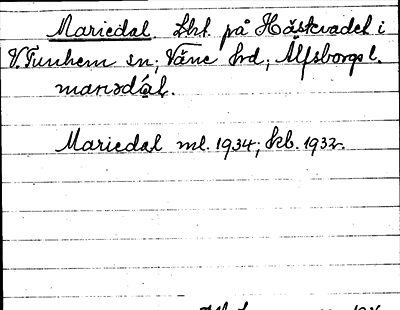 Mariedal. Lht. på Hästevadet i
V. Tunhem sn; Väne hrd, Älfsborgs l.
marədál.
Mariedal ml. 1934; kb. 1932.